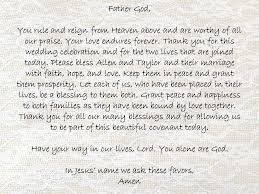 Father God,
You rule and reign from Heaven above and are worthy of all
our praise. Your love endures forever. Thank you for this
wedding celebration and for the two lives that are joined
today. Please bless Allen and Taylor and their marriage
with faith, hope, and love. Keep them in peace and grant
them prosperity. Let each of us, who have been placed in their
lives, be a blessing to them both. Grant peace and happiness
to both families as they have been bound by love together.
Thank you for all our many blessings and for allowing us
to be part of this beautiful covenant today.
Have your way in our lives, Lord. You alone are God.
In Jesus' name we ask these favors.
Amen